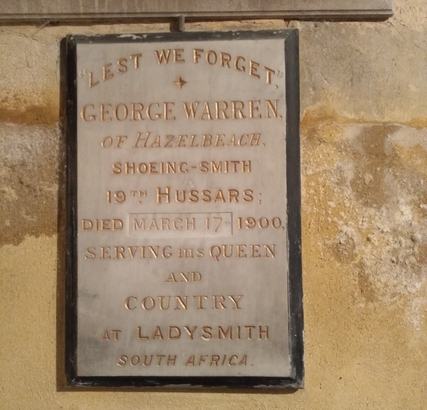 "LEST WE FORGET".
GEORGE WARREN,
OF HAZELBEACH,
SHOEING-SMITH
19TH HUSSARS;
DIED MARCH 17. 1900,
SERVING HIS QUEEN
AND
COUNTRY
AT LADYSMITH
SOUTH AFRICA.